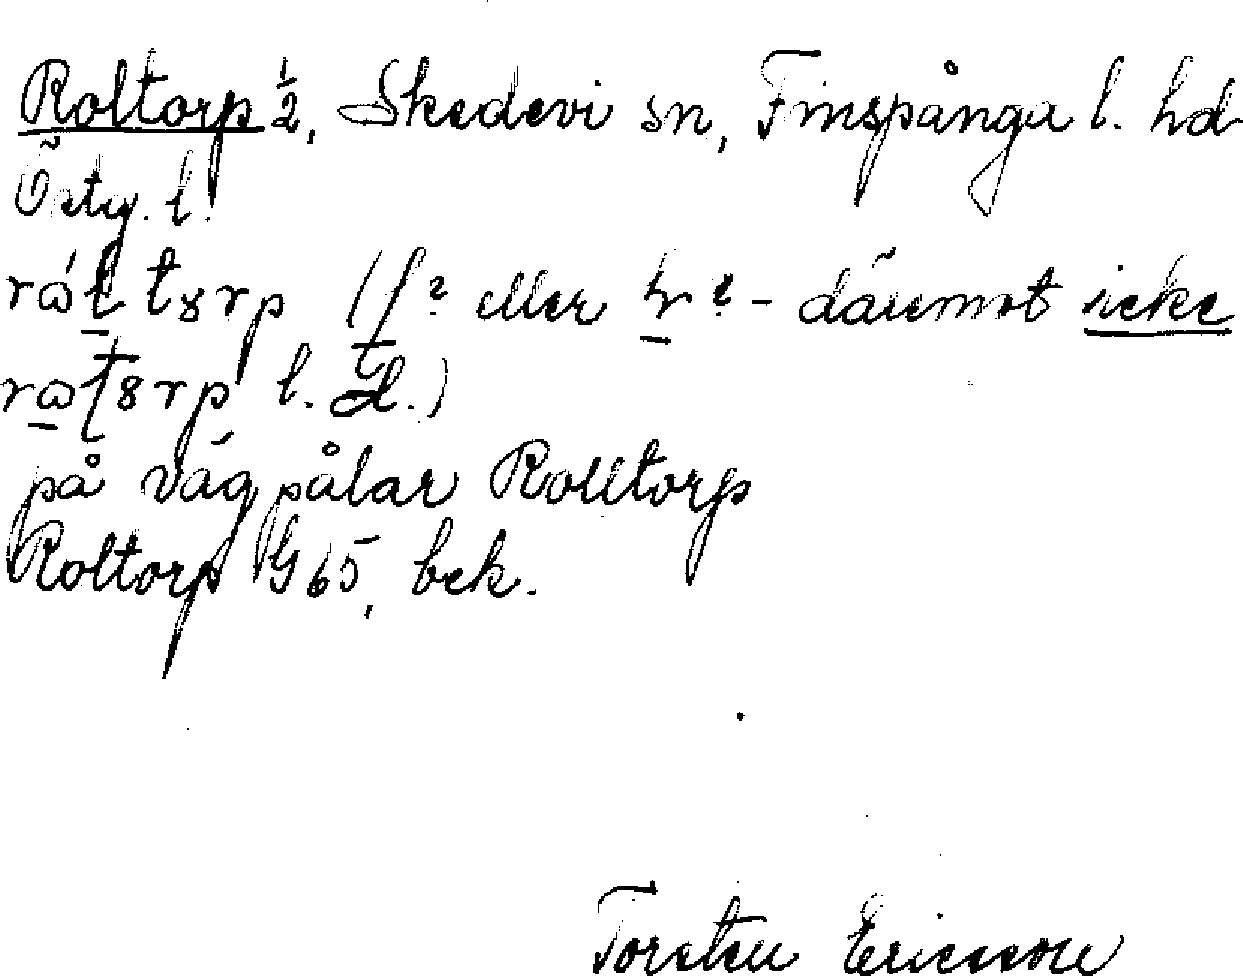 Roltorp ½, Skedevi sn, Finspånga l. hd
Östg. l.
eller däremot icke
l. d.)
på vägpålar Rolltorp
Roltorp G 65, bek.
Torsten Ericsson